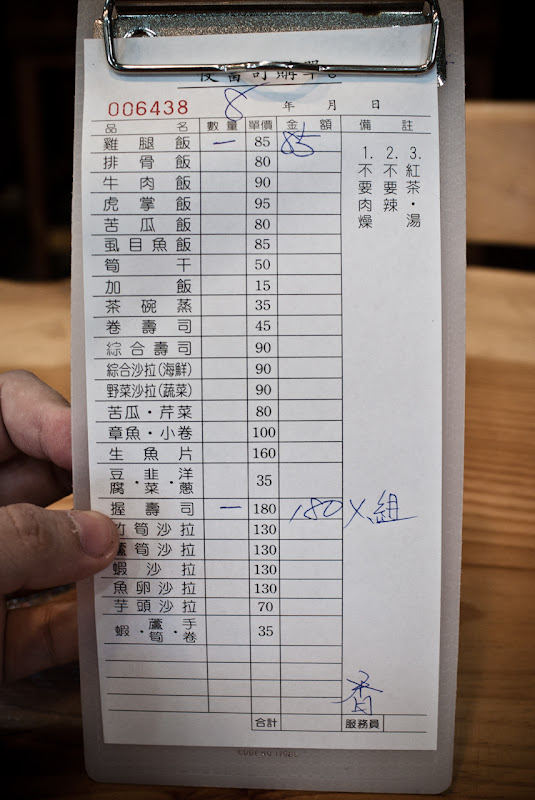 訂購單
006438 8 年 月 日
品名 數量 單價 金額 備註
雞腿飯 一 85 85
排骨飯 80
牛肉飯 90
虎掌飯 95
苦瓜飯 80
虱目魚飯 85
筍干 50
加飯 15
茶碗蒸 35
卷壽司 45
綜合壽司 90
綜合沙拉(海鮮) 90
野菜沙拉(蔬菜) 90
苦瓜·芹菜 80
章魚·小卷 100
生魚片 160
豆腐·韭菜·洋蔥 35
握壽司 一 180 180 X組
竹筍沙拉 130
蘆筍沙拉 130
蝦沙拉 130
魚卵沙拉 130
芋頭沙拉 70
蝦·蘆筍·手卷 35
3.紅茶·湯
2.不要辣
1.不要肉燥
香
合計 服務員